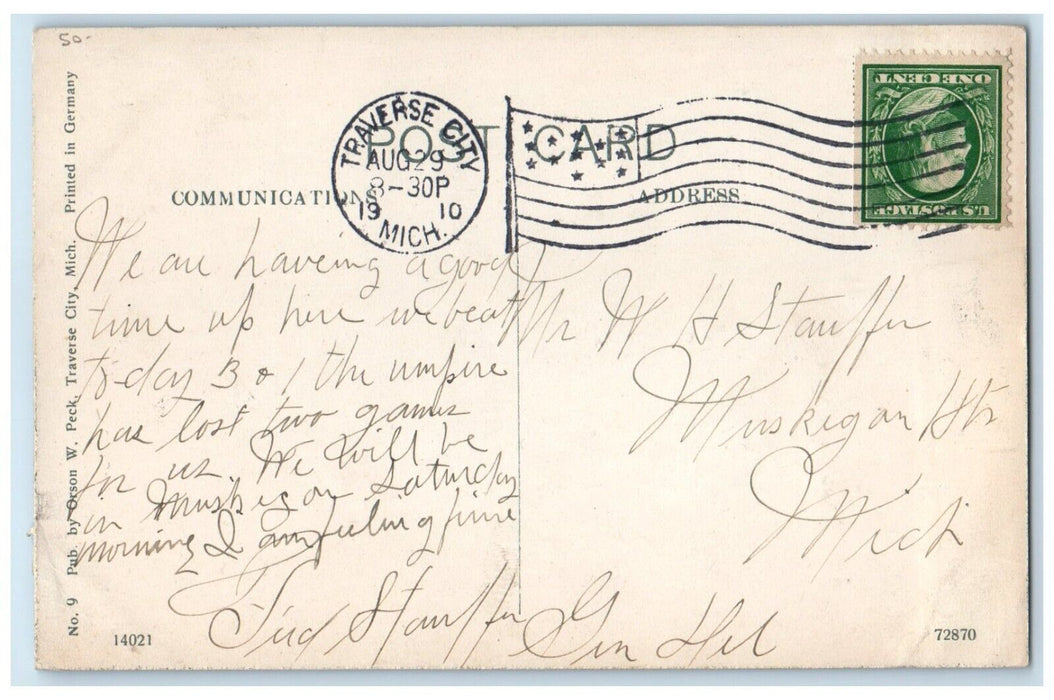 50-
No. 9 Pub. by Orson W. Peck, Traverse City, Mich. Printed in Germany
POST CARD
TRAVERSE CITY
AUG 29
8-30P
19 10
MICH.
ONE CENT
U.S. POSTAGE
COMMUNICATIONS
ADDRESS
We are haveing a good
time up here we beat
to-day 3 & 1 the umpire
has lost two games
for us. We will be
in Muskegon Saturday
morning I am feeling fine
Stauffer
Mr W H Stauffer
Muskegon Hts
Mich
Gen Del
14021
72870